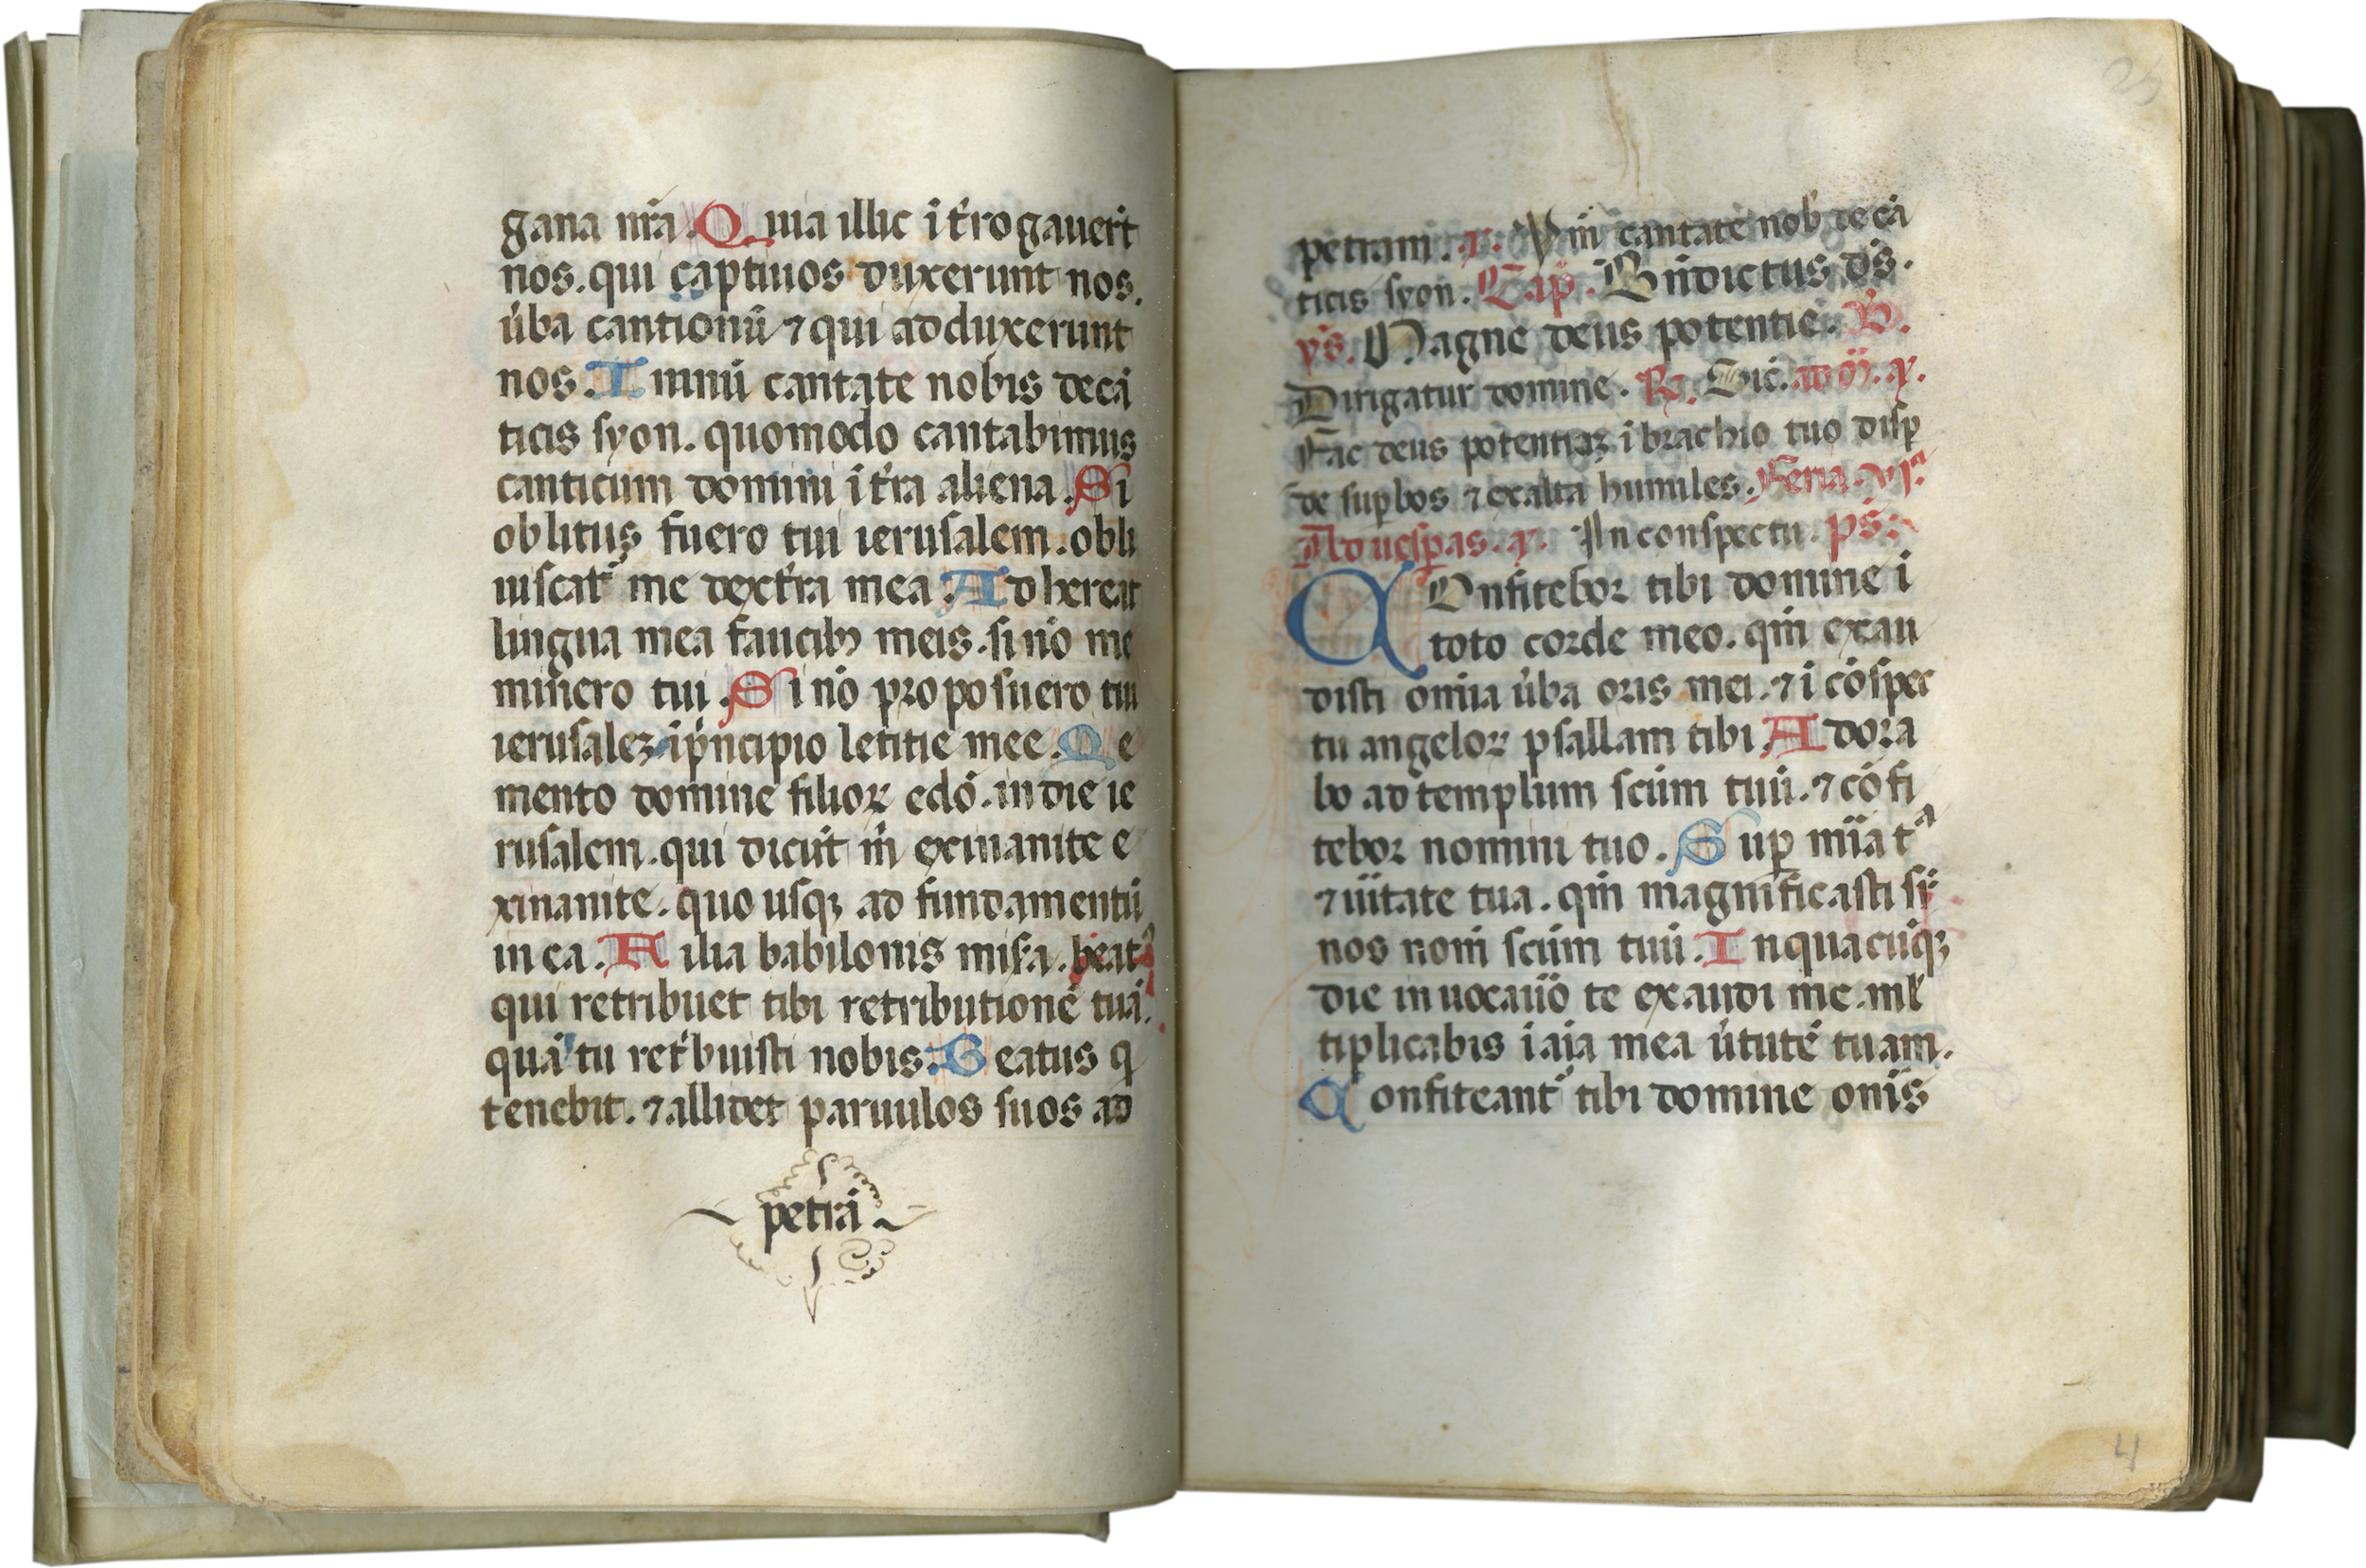 gana nr̄a. Quia illic ī t̄rogauer̄t
nos. qui captiuos duxerunt nos.
u̅ba cantionū ⁊ qui adduxerunt
nos. Imnū cantate nobis de cā
ticis syon. quomodo cantabimus
canticum domini ī t̄ra aliena. Si
oblitus fuero tui ierusalem. obli
uiscat᷑ me dext̄ra mea. Adhereat
lingua mea faucibꝫ meis. si nō me
minero tui. Si nō proposuero tui
ierusalēꝫ ī pⁱncipio letitie mee. Me
mento domine filioꝝ edō. in die ie
rusalem. qui dicūt īn exinanite e
xinanite. quo usqꝫ ad fundamentū
in ea. Filia babilonis mis̄a. beatꝰ
qui retribuet tibi retributionē tuā.
quā tu retⁱbuisti nobis. Beatus q
tenebit. ⁊ allidet paruulos suos ad
petrā
petram. a̅. Ym̄ cantate nob̄ de cā
ticis syon. Cap̄. Bn̄dictus ds̄.
ys̄. Magne deus potentie. V̄.
Dirigatur domine. ℟. Sic̄. ad m̄. a̅.
Fac deus potentiaꝫ ī brachio tuo disꝑ
de suꝑbos ⁊ exalta humiles. Feria. vjᵃ
Ad uesꝑas. a̅. In conspectu. ps̄.
COnfitebor tibi domine ī
toto corde meo. qm̄ exau
disti om̄ia u̅ba oris mei. ⁊ ī cōspec
tu angeloꝝ psallam tibi. Adora
bo ad templum scūm tuū. ⁊ cōfi
tebor nomini tuo. Suꝑ mīa tᵃ
⁊ uītate tua. qm̄ magnificasti sꝑ
nos nom̄ scūm tuū. In quacūqꝫ
die inuocauō te exaudi me. ml̄
tiplicabis ī aīa mea u̅tutē tuam.
Confiteant᷑ tibi domine om̄s
4